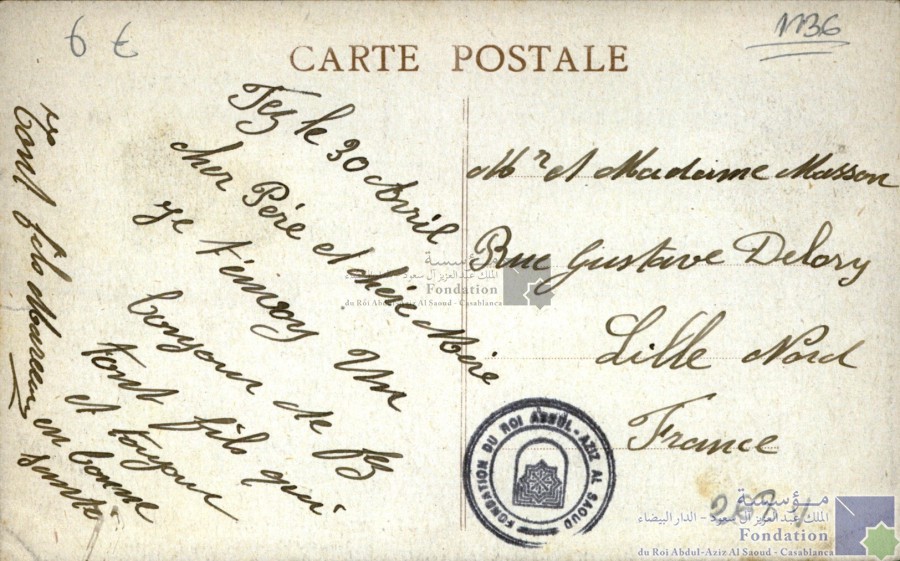 6 €
1136
CARTE POSTALE
Fez le 30 Avril
cher Père et chére Mére
je t'envoy Un
bonjour de Fez
tont fils qui
et toujour
en bonne
santé
tont fils
Mr et Madame Masson
Rue Gustave Delory
Lille Nord
France
FONDATION DU ROI ABDUL-AZIZ AL SAOUD
مؤسسة
الملك عبد العزيز آل سعود
Fondation
du Roi Abdul-Aziz Al Saoud - Casablanca
مؤسسة
الملك عبد العزيز آل سعود - الدار البيضاء
Fondation
du Roi Abdul-Aziz Al Saoud - Casablanca